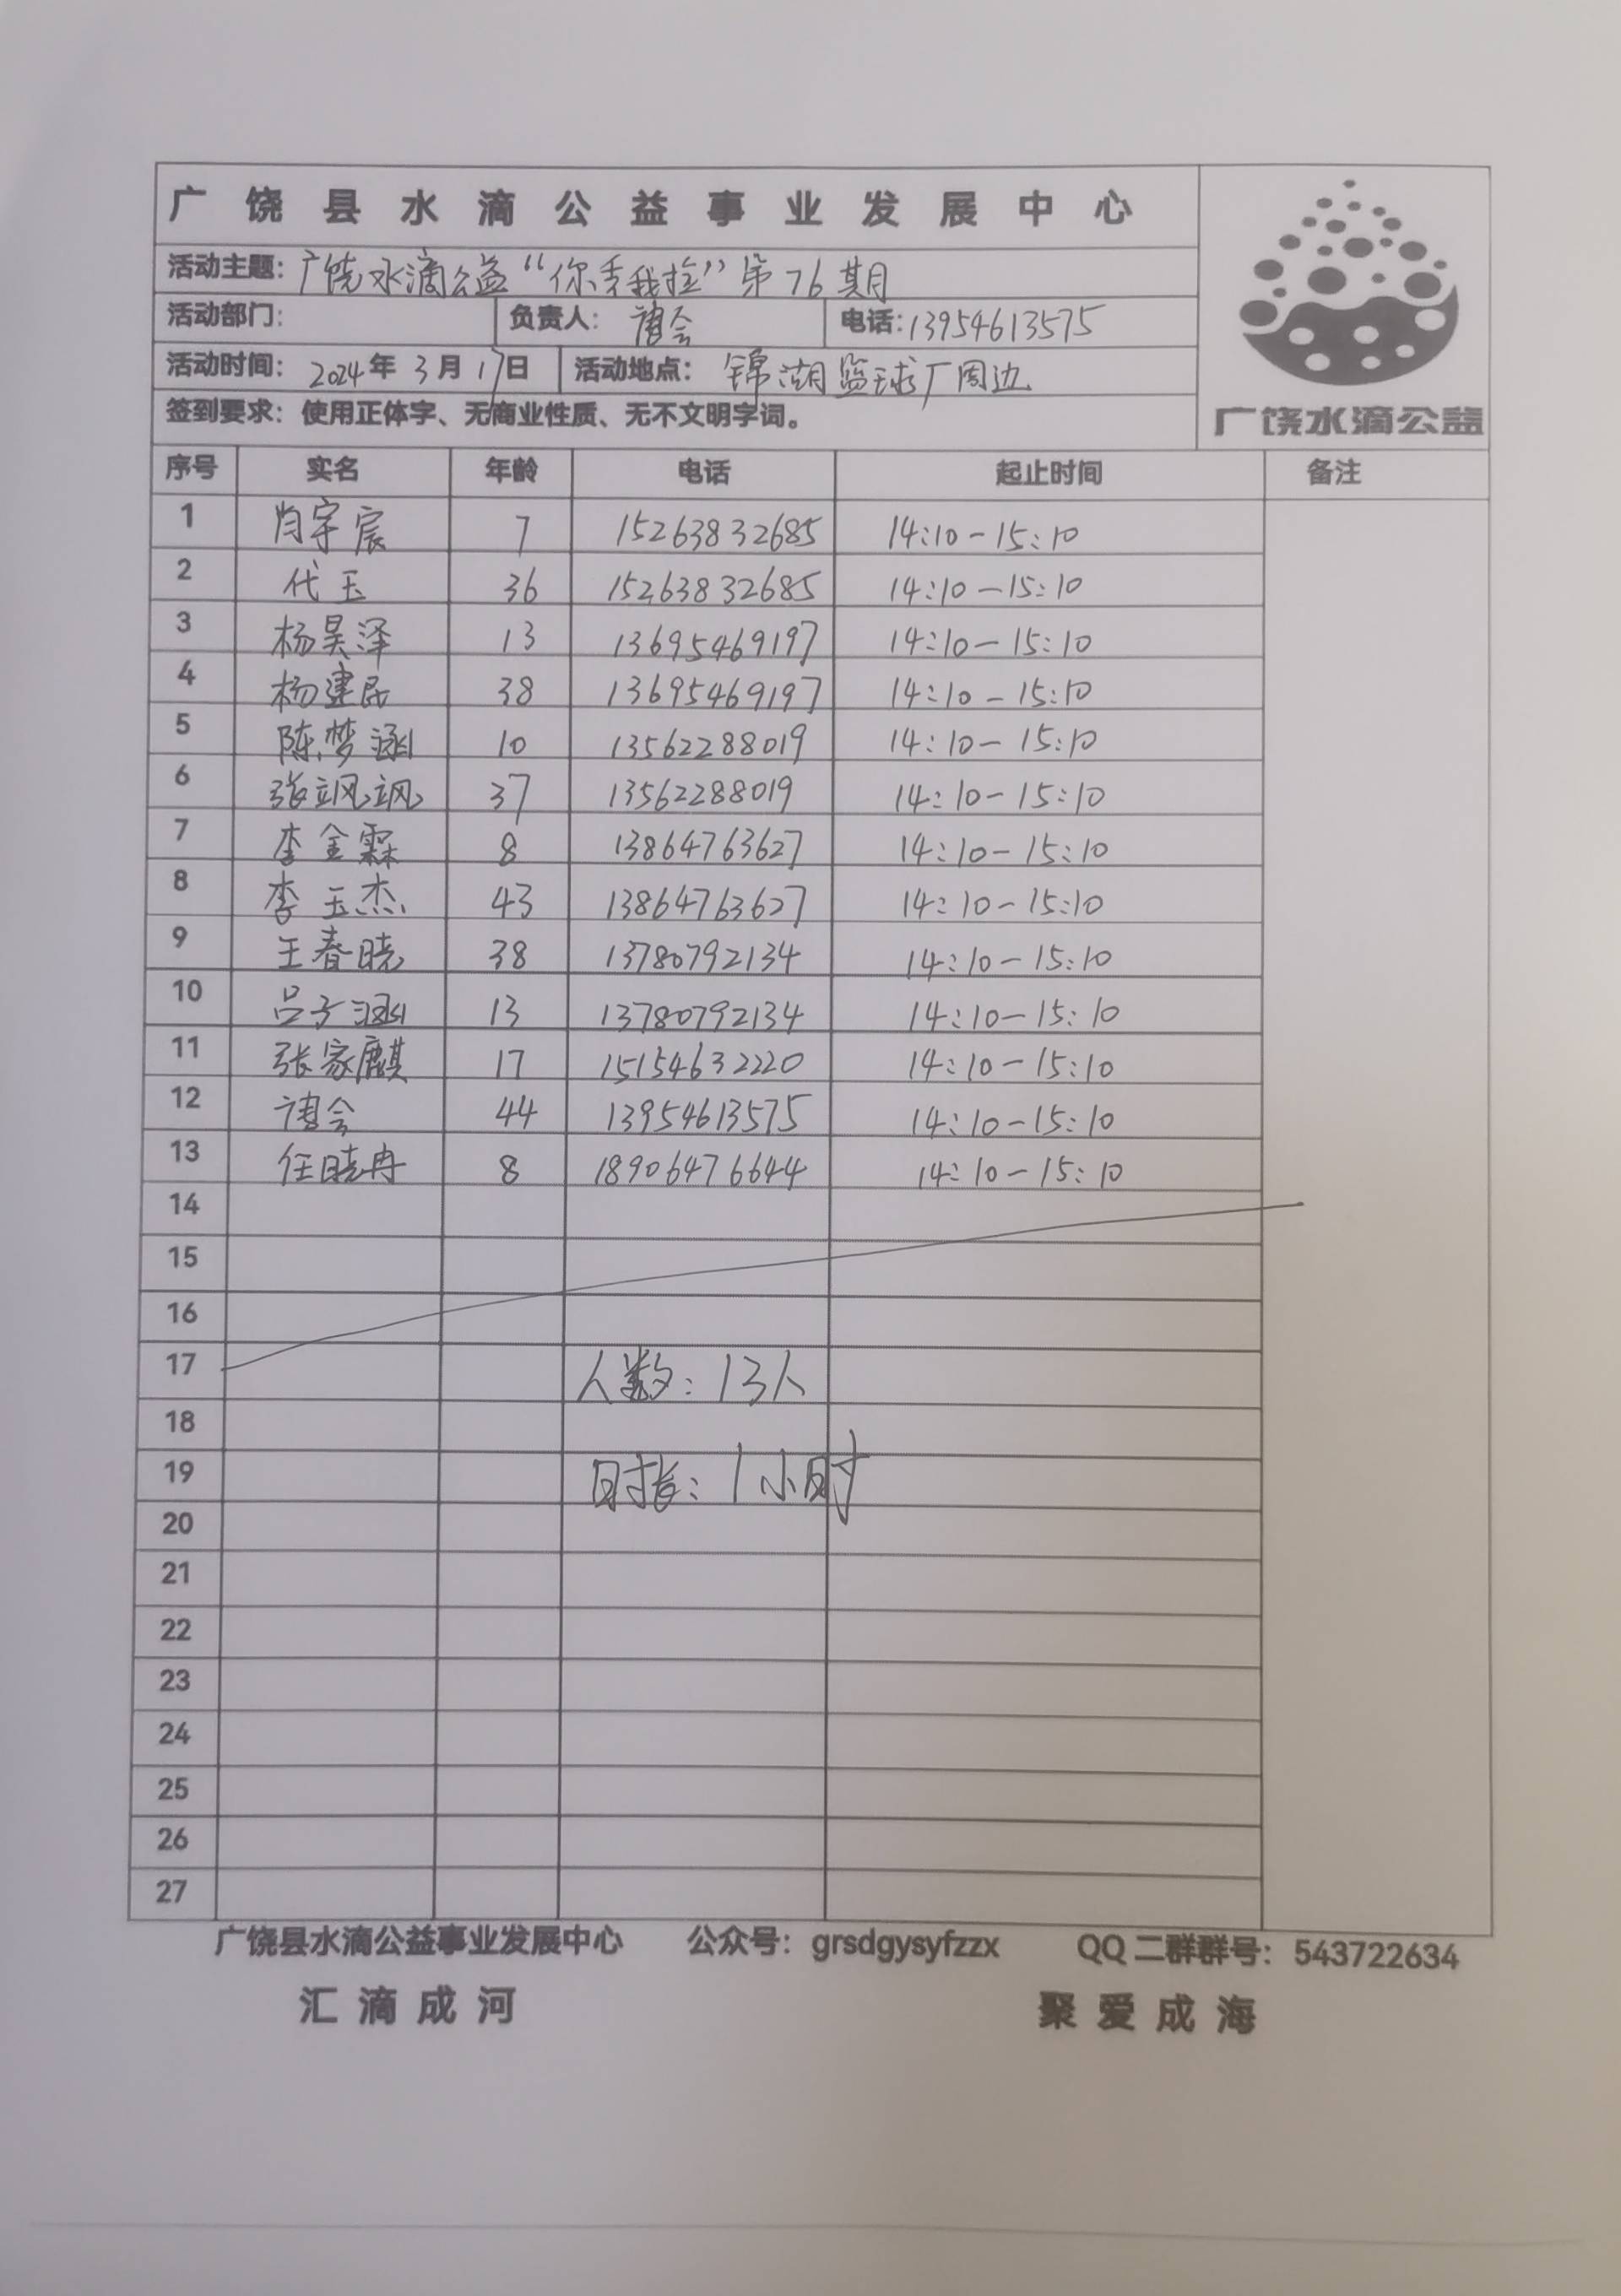 广饶县水滴公益事业发展中心
活动主题：广饶水滴公益“你丢我捡”第76期
活动部门： 负责人：谱会 电话：13954613575
活动时间：2024年3月17日 活动地点：锦湖篮球厂周边
签到要求：使用正体字、无商业性质、无不文明字词。
广饶水滴公益
序号 实名 年龄 电话 起止时间 备注
1 肖宇宸 7 15263832685 14:10-15:10
2 代玉 36 15263832685 14:10-15:10
3 杨昊泽 13 13695469197 14:10-15:10
4 杨建民 38 13695469197 14:10-15:10
5 陈梦涵 10 13562288019 14:10-15:10
6 张飒飒 37 13562288019 14:10-15:10
7 李金霖 8 13864763627 14:10-15:10
8 李玉杰 43 13864763627 14:10-15:10
9 王春晓 38 13780792134 14:10-15:10
10 吕子涵 13 13780792134 14:10-15:10
11 张家麒 17 15154632220 14:10-15:10
12 谱会 44 13954613575 14:10-15:10
13 任晓冉 8 18906476644 14:10-15:10
14
15
16
17 人数：13人
18
19 时长：1小时
20
21
22
23
24
25
26
27
广饶县水滴公益事业发展中心 公众号：grsdgysyfzzx QQ二群群号：543722634
汇滴成河 聚爱成海